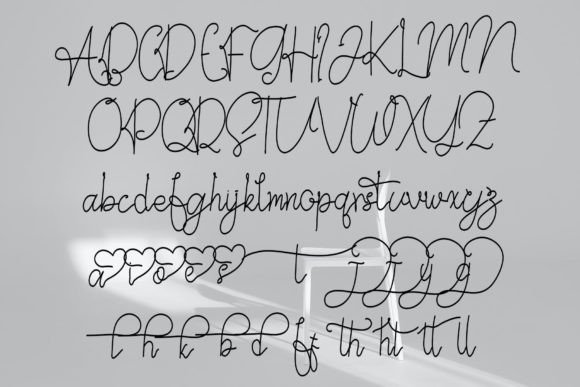 ABCDEFGHIJKLMN
OPQRSTUVWXYZ
abcdefghijklmnopqrstuvwxyz
a r o e s t j j y g
l h k b d ff th ht tt ll